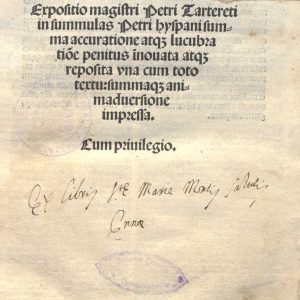 Expositio magistri Petri Tartereti
in summulas Petri hyspani sum
ma accuratione atqȝ lucubra
tiõe penitus inouata atqȝ
reposita vna cum toto
textu: summaqȝ ani
maduersione
impressa.
Cum priuilegio.
Ex Libris Stę Marie Montis Salutis